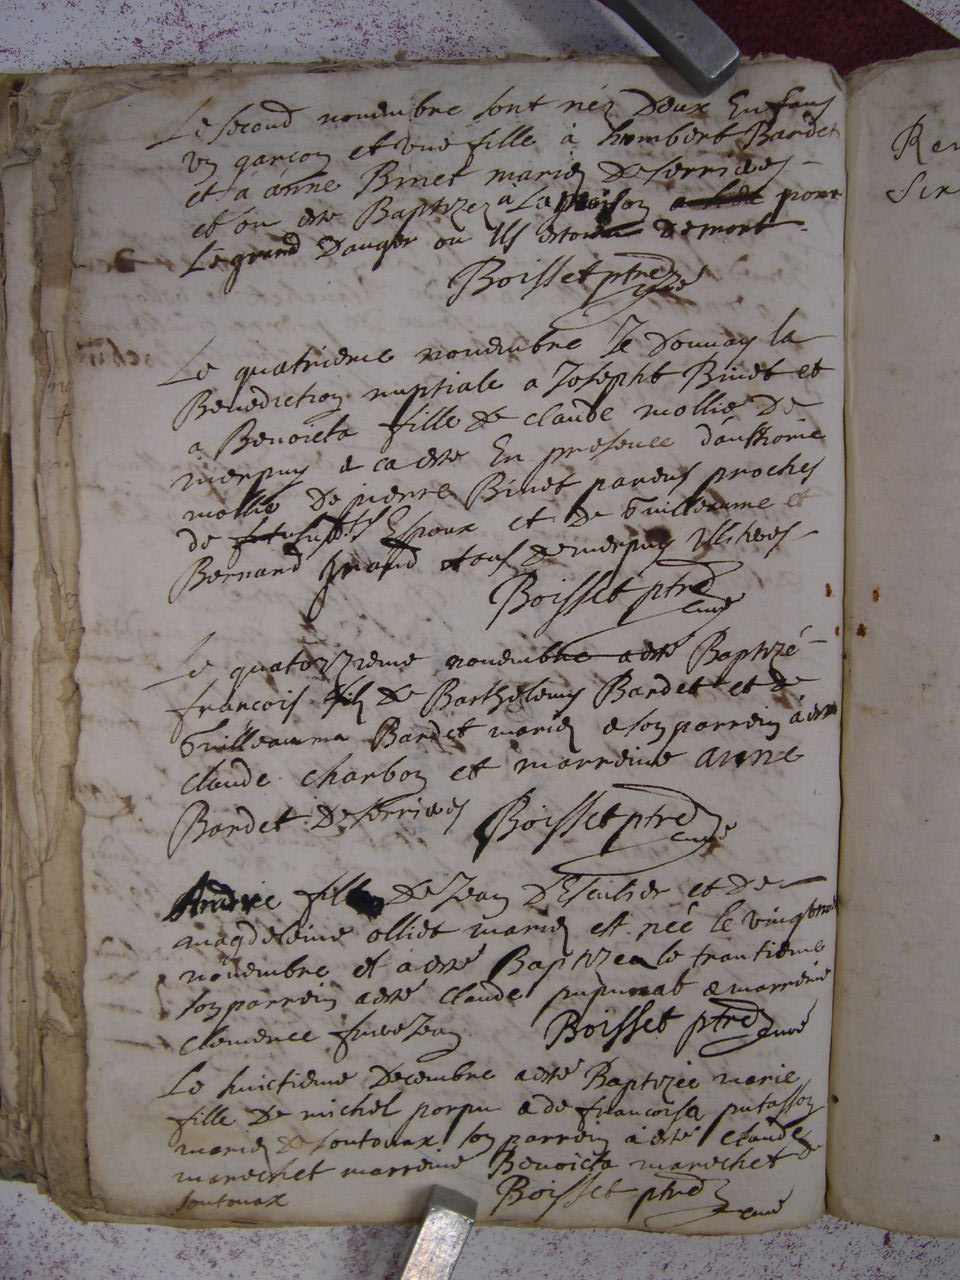 Le second novembre sont néz Deux Enfans
un garçon et une fille à humbert Bardet
et à anne Binet mariez De serrieres
et on esté Baptizez à La maison pour
Le grand Danger ou Ils estoient De mort
Boisset ptre curé
Le quatrieme novembre Je Donnay la
Benediction nuptiale a Joseph Binet et
a Benoicta fille De claude mollie De
merpuy e ca esté En presence d'anthoine
mollie De pierre Binet parens proches
de Espoux et de Guilleaume et
Bernard tous de merpuy
Boisset ptre curé
Le quatorzieme novembre a esté Baptizé
francois filz de Barthelemy Bardet et de
Guilleauma Bardet mariez e son parrein à esté
claude charbon et marreine anne
Bardet De serrieres Boisset ptre curé
Andree fille De Jean et De
magdeleine olliet mariez est née le
novembre et a esté Baptizea le trantieme
son parrein a esté claude pupunat e marreine
clemence Boisset ptre curé
Le huictieme Decembre a esté Baptizée marie
fille De michel porpu e de francoise putasson
mariez De soutonax son parrein à esté claude
mareschet marreine Benoicta mareschet de
soutonax Boisset ptre curé
Ren
Sir